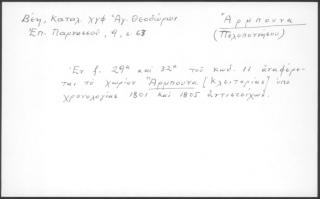 Βέη, Καταλ. χγφ Ἁγ. Θεοδώρων
Ἐπ. Παρνασσοῦ, 9, σ. 63
Ἀρμπουνα
(Πελοποννήσου)
Ἐν f. 29ᵃ καὶ 32ᵃ τοῦ κωδ. 11 ἀναφέρε-
ται τὸ χωρίον Ἀρμπουνα [Κλειτορίας] ὑπὸ
χρονολογίας 1801 καὶ 1805 ἀντιστοίχως.